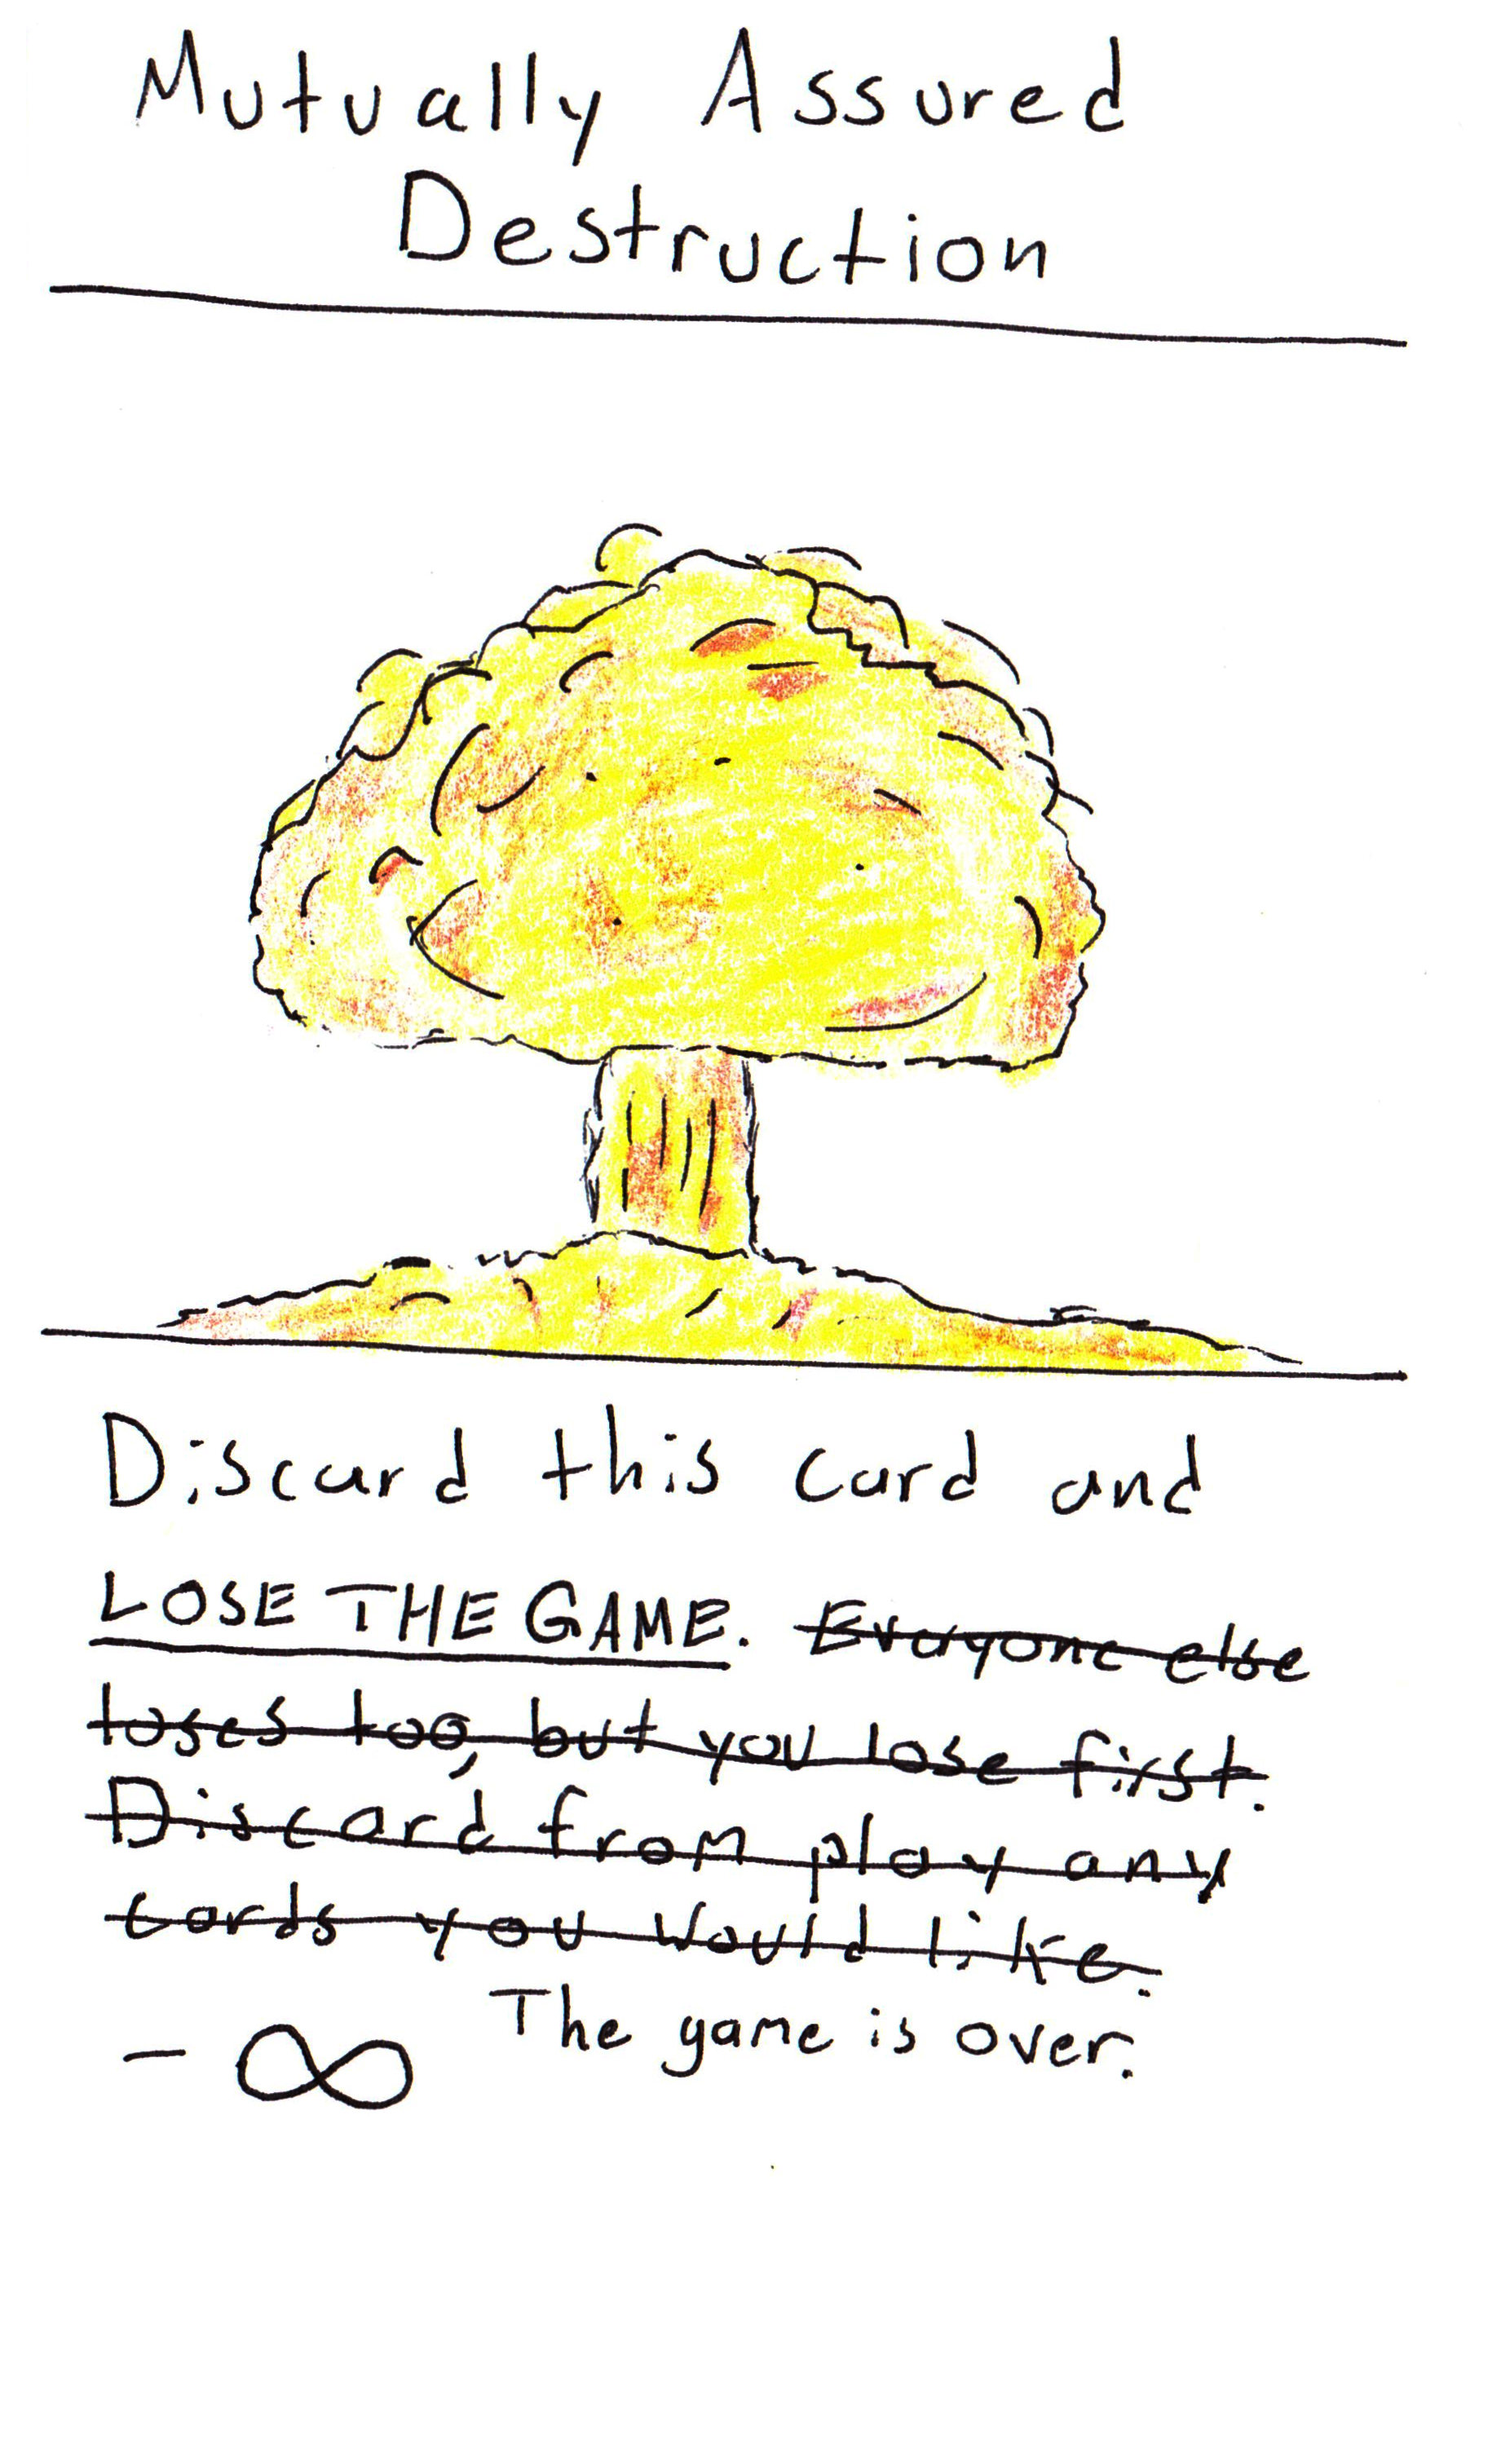 Mutually Assured
Destruction
Discard this card and
LOSE THE GAME. Everyone else
loses too, but you lose first.
Discard from play any
cards you would like.
The game is over.
-∞